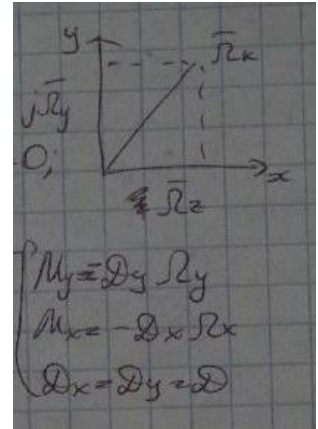 y
Ω̄к
jΩ̄y
0;
x
Ω̄z
My = Dy Ωy
Mx = -Dx Ωx
Dx = Dy = D